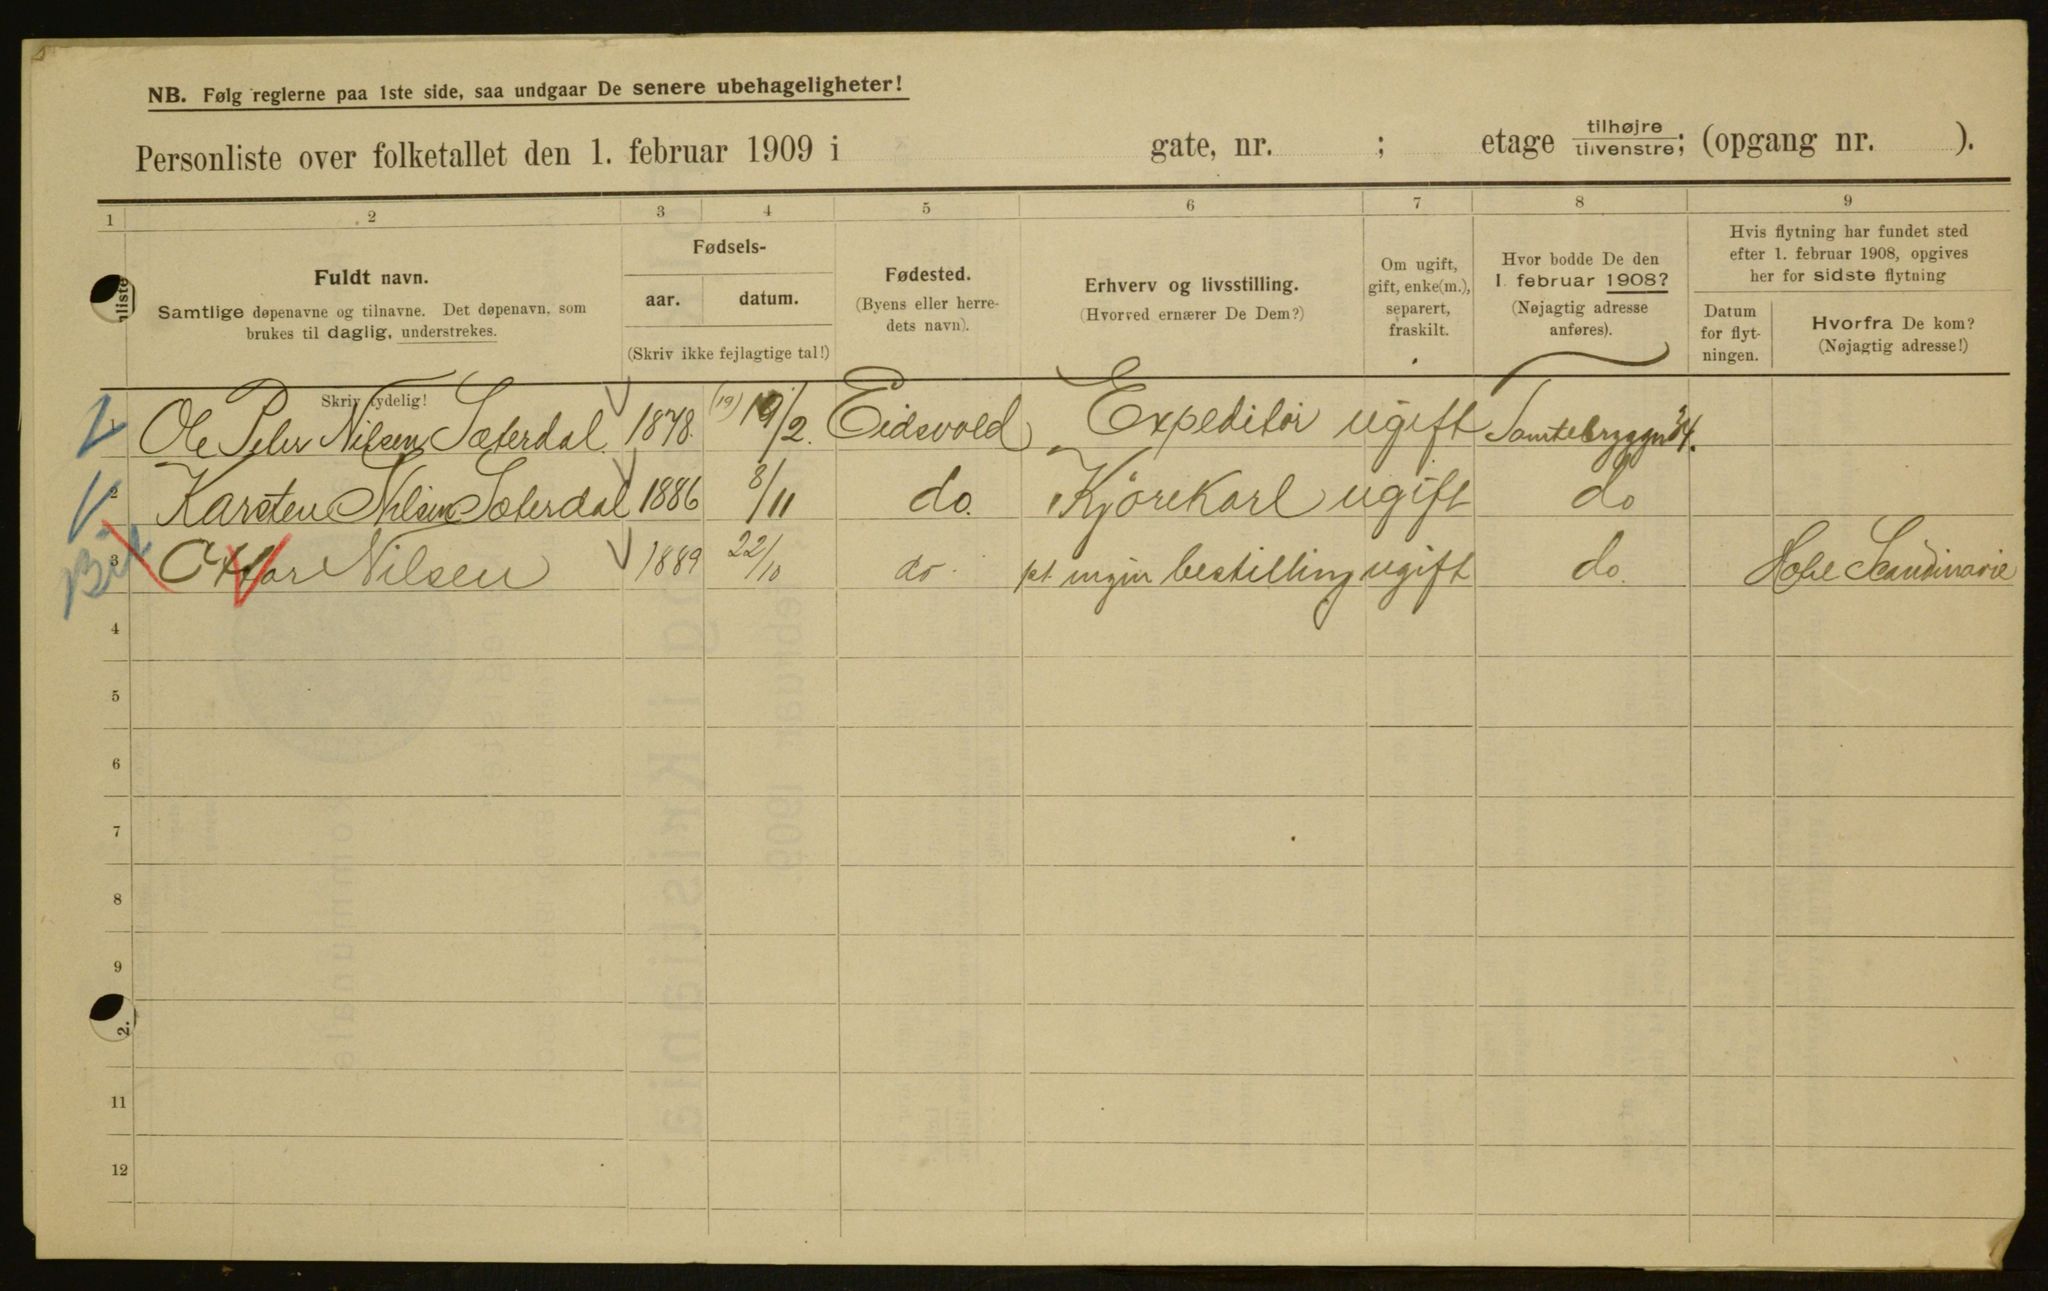 NB. Følg reglerne paa 1ste side, saa undgaar De senere ubehageligheter!
Personliste over folketallet den 1. februar 1909 i gate, nr. ; etage tilhøjre tilvenstre; (opgang nr. ).
1 2 3 4 5 6 7 8 9
Fuldt navn.
Samtlige døpenavne og tilnavne. Det døpenavn, som
brukes til daglig, understrekes.
Skriv tydelig!
Fødsels-
aar. datum.
(Skriv ikke fejlagtige tal!)
Fødested.
(Byens eller herre-
dets navn).
Erhverv og livsstilling.
(Hvorved ernærer De Dem?)
Om ugift,
gift, enke(m.),
separert,
fraskilt.
Hvor bodde De den
1. februar 1908?
(Nøjagtig adresse
anføres).
Hvis flytning har fundet sted
efter 1. februar 1908, opgives
her for sidste flytning
Datum
for flyt-
ningen.
Hvorfra De kom?
(Nøjagtig adresse!)
1 Ole Peder Nilsen Sæterdal 1878. (19) 19/2. Eidsvold Expeditør ugift Tomtebryggn 34.
2 Karsten Nilsen Sæterdal 1886 8/11 do. Kjörekarl ugift do
3 Nilsen 1889 22/10 do pt ingen bestilling ugift do. Hotel Scandinavie
4
5
6
7
8
9
2.
11
12